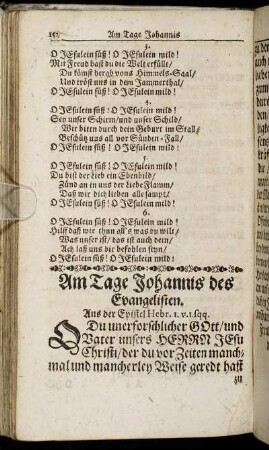 152 Am Tage Johannis
3.
O JEsulein süß! O JEsulein mild!
Mit Freud hast du die Welt erfüllt/
Du kömst herab vons Himmels-Saal/
Und tröst uns in dem Jammerthal/
O JEsulein süß! O JEsulein mild!
4.
O JEsulein süß! O JEsulein mild!
Sey unser Schirm/und unser Schild/
Wir bitten durch dein Geburt im Stall/
Beschüß uns all vor Sünden-Fall/
O JEsulein süß! O JEsulein mild!
5.
O JEsulein süß! O JEsulein mild!
Du bist der Lieb ein Ebenbild/
Zünd an in uns der Liebe Flamm/
Daß wir dich lieben alle sampt/
O JEsulein süß! O JEsulein mild!
6.
O JEsulein süß! O JEsulein mild!
Hilff daß wir thun all's was du wilt/
Was unser ist/das ist auch dein/
Ach laß uns dir befohlen seyn/
O JEsulein süß! O JEsulein mild!
Am Tage Johannis des
Evangelisten.
Aus der Epistel Hebr. 1. v.1.sqq.
O Du unerforschlicher GOtt/und
Vater unsers HERRN JESu
Christi/der du vor Zeiten manch-
mal und mancherley Weise geredt hast
zu